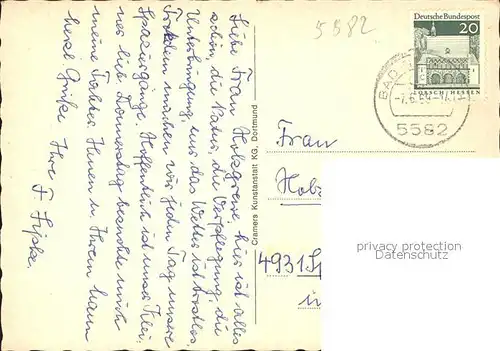 Liebe Frau Holzgreve, hier ist alles
schön, die Natur, die Verpflegung, die
Unterbringung, nur das Wetter ist trostlos.
Trotzdem machen wir jeden Tag unsere
Spaziergänge. Hoffentlich ist unser
Donnerstag
meine Tochter Ihnen u. Ihrem Mann
herzl. Grüße Ihre F.
Cramers Kunstanstalt KG., Dortmund
5582
Deutsche Bundespost
20
LORSCH HESSEN
BAD
5582
Frau
4931
privacy protection
Datenschutz